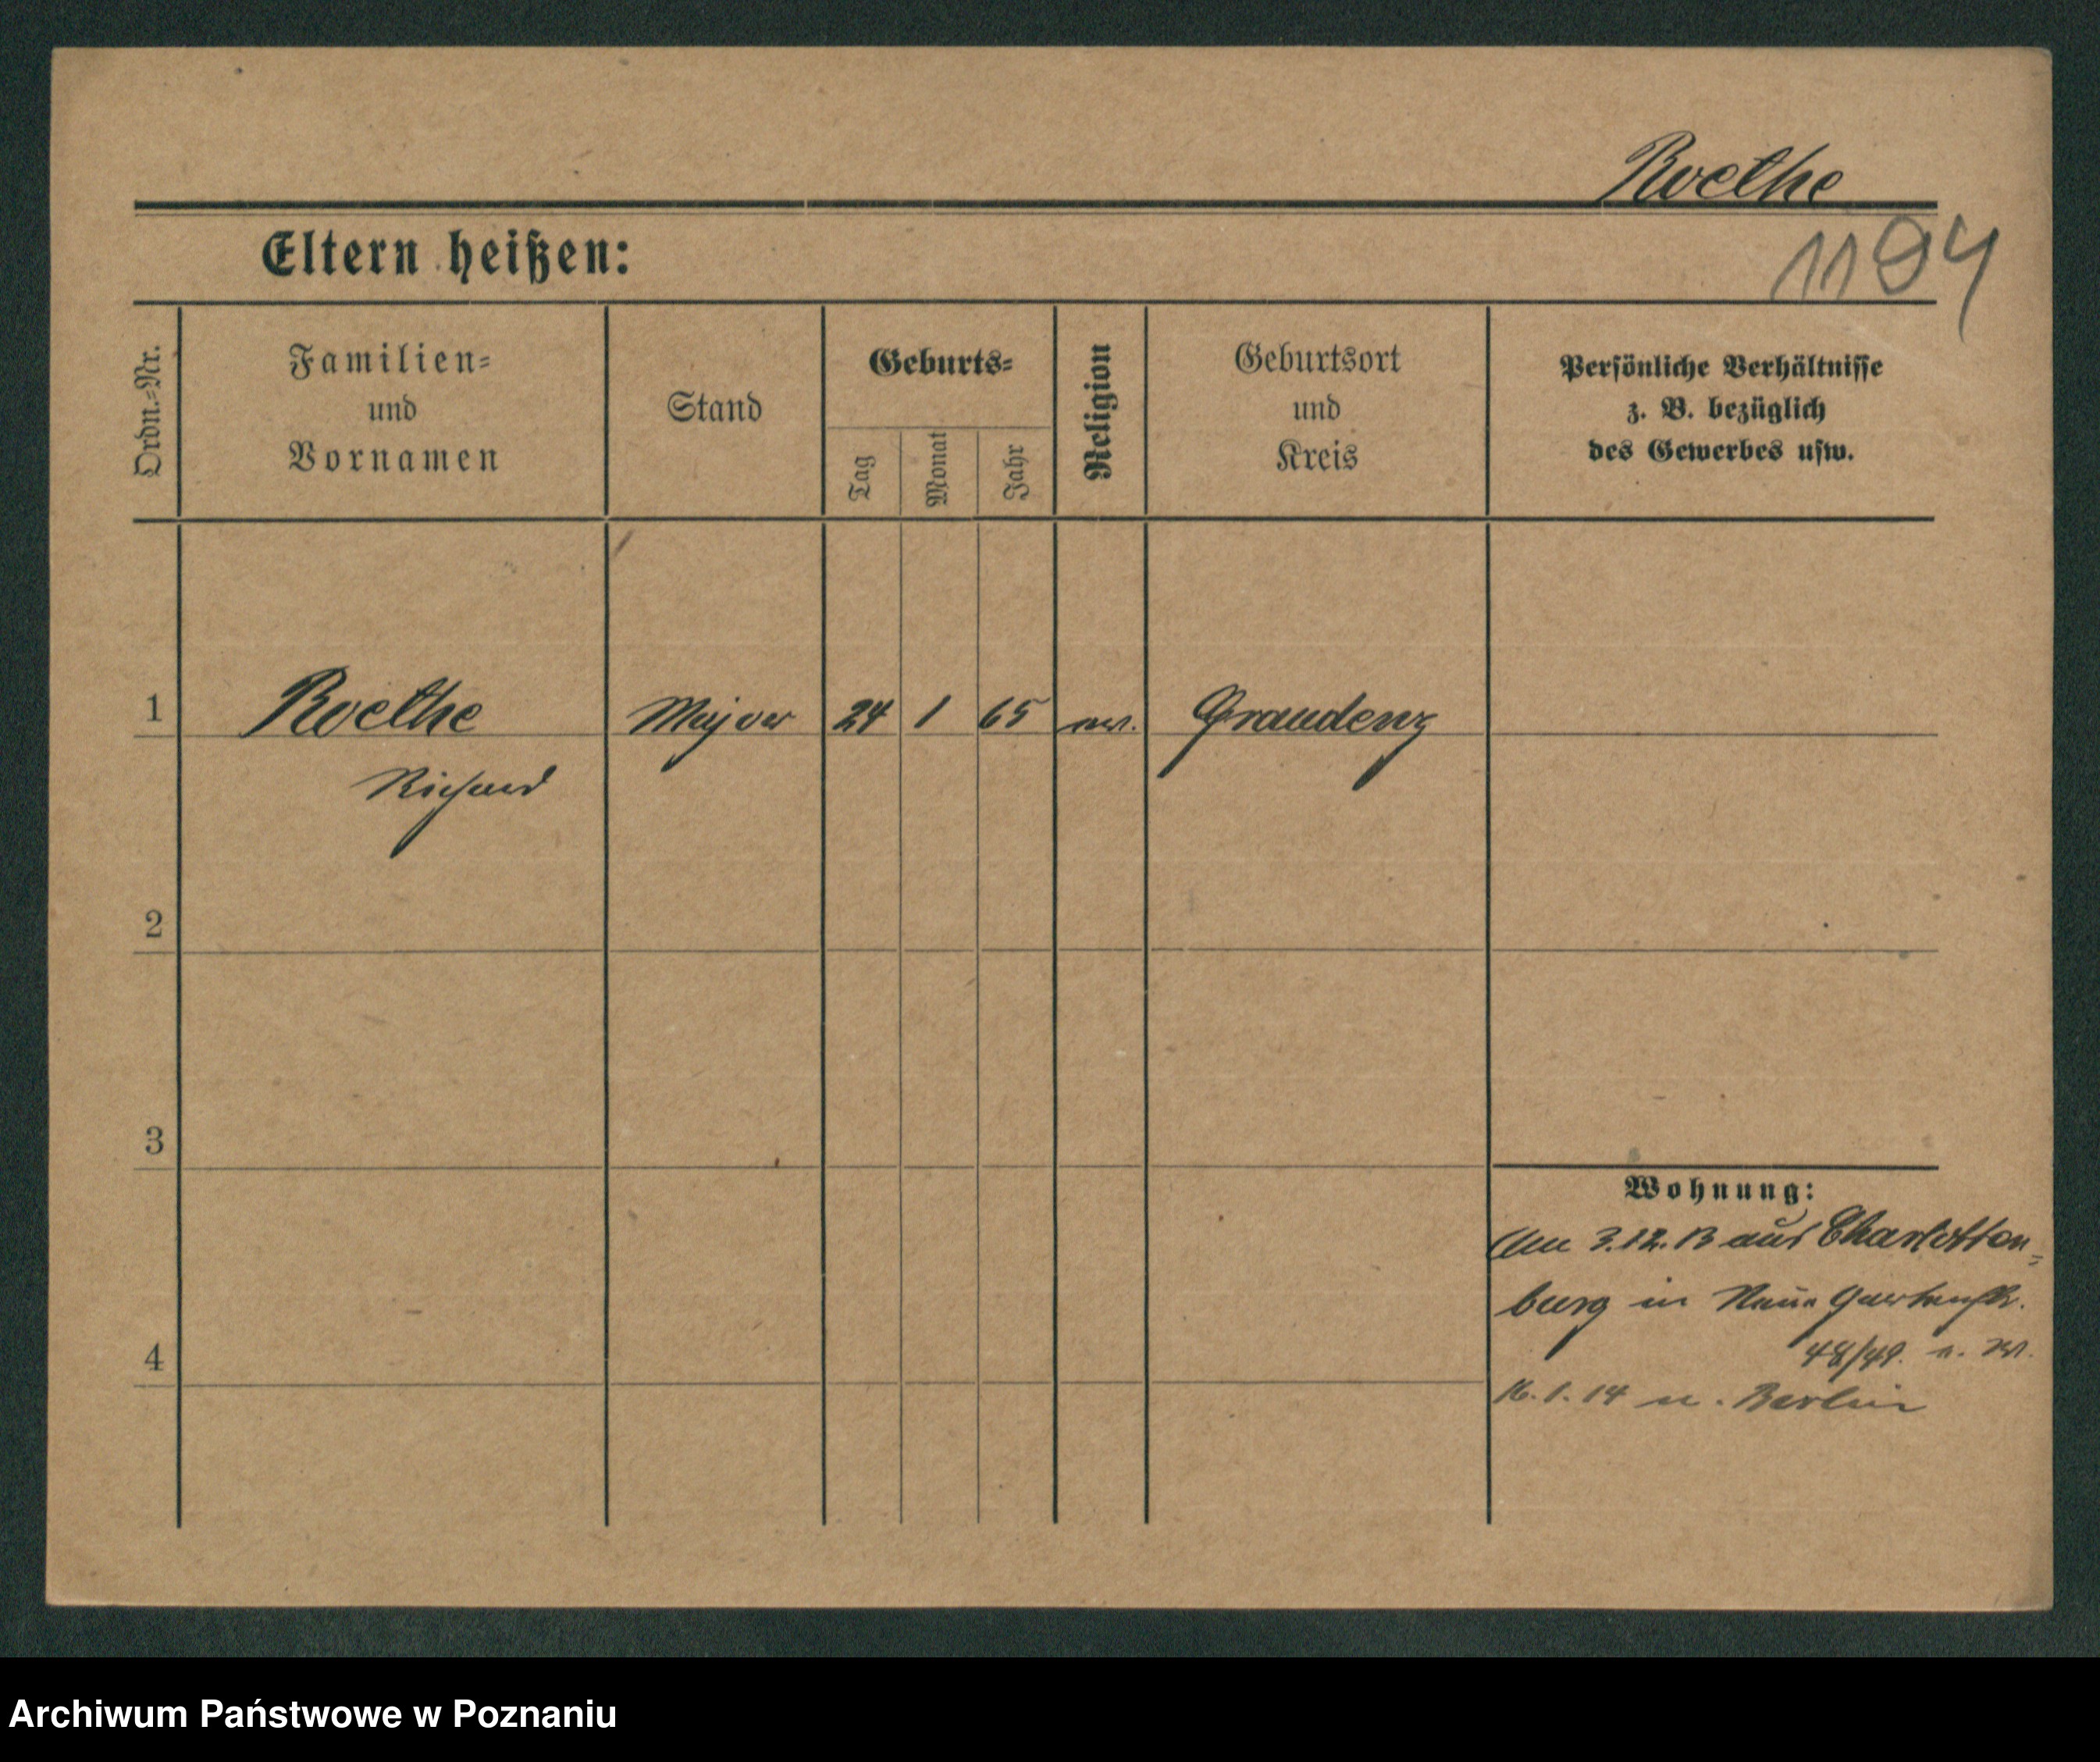 Roethe
1194
Eltern heißen:
Ordn.-Nr.
Familien-
und
Vornamen
Stand
Geburts-
Tag
Monat
Jahr
Religion
Geburtsort
und
Kreis
Persönliche Verhältnisse
z. B. bezüglich
des Gewerbes usw.
1 Roethe Major 24 1 65 ev. Graudenz
Richard
2
3
4
Wohnung:
Am 3.12.13 aus Charlotten-
burg in Neue Gartenstr.
48/49.
16.1.14 n. Berlin
Archiwum Państwowe w Poznaniu